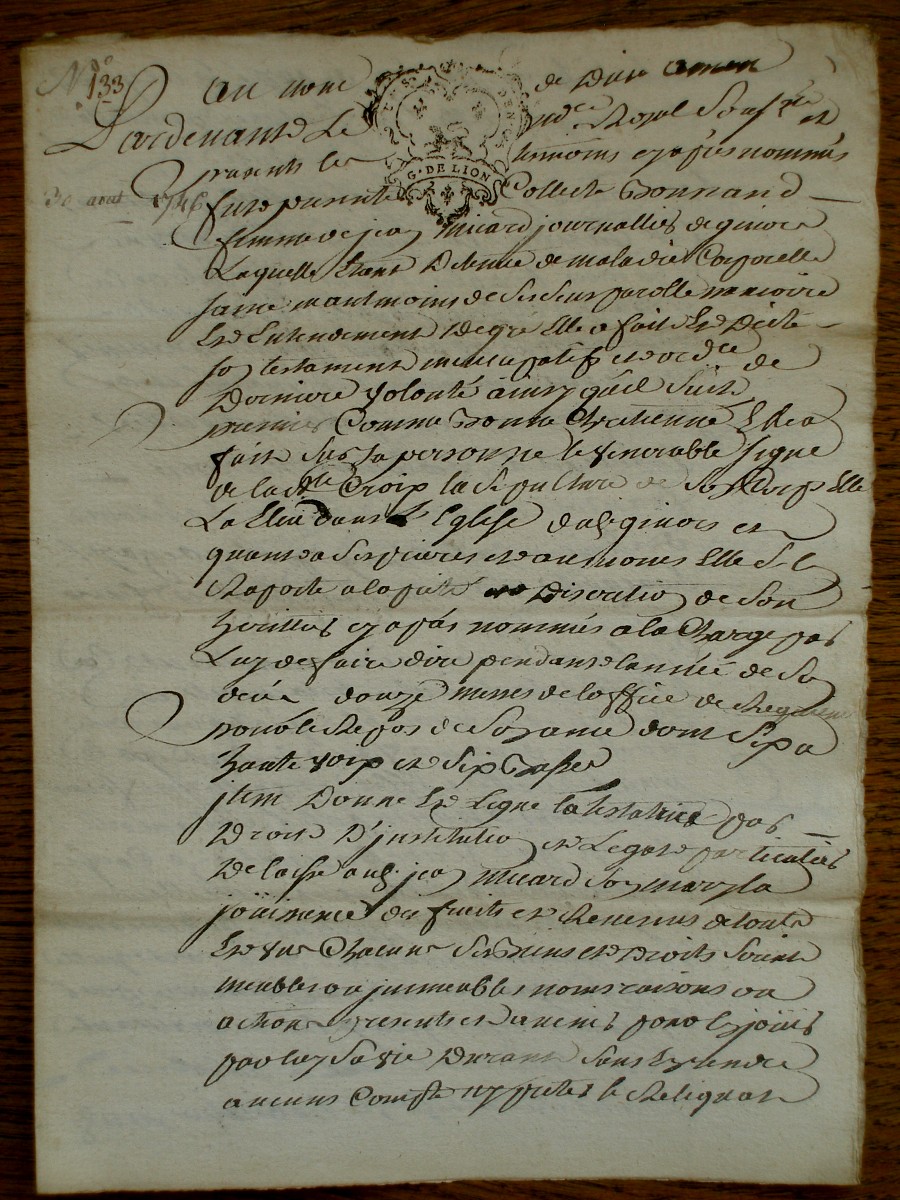 N° 133
au nom de Dieu amen
Pardevant le nore Royal Soussigné et
presents les temoins cy apres nommés
30 avril 1746
G. DE LION
fut presente Collecte Bonnand
femme de jean Micard journallier de ginois
Laquelle Etant Detenue de maladie Corporelle
saine neantmoins de ses sens parolle memoire
Et Entendement De gré Elle a fait Et Dicté
son testament nuncupatif et ordce de
Derniere Volonté ainsy quil suit
premier Comme Bonne Chretienne Elle a
fait sur sa personne le Venerable signe
de la Ste Croix la sepulture de son Corps Elle
La Eleu dans L'Eglise dud. ginois et
quant a ses prieres et aumones Elle s'en
Raporte a la pieté Discretion de son
heritier cy apres nommés a la Charge par
Luy de faire dire pendant lannée de son
decés douze messes de loffice de Requiem
pour le Repos de son ame dont six a
haute voix et six basses
jtem Donne Et Legue la testatrice par
Droit D'institution et Legat particulier
Delaisse aud. jean Micard son mary la
joüissance des fruits et Revenus de touts
Et un Chacuns ses Biens et Droits soient
meubles ou jmmeubles noms raisons ou
actions presents et avenir pour En joüir
par luy sa vie Durant sans En rendre
aucuns Compte ny preter le Reliquat